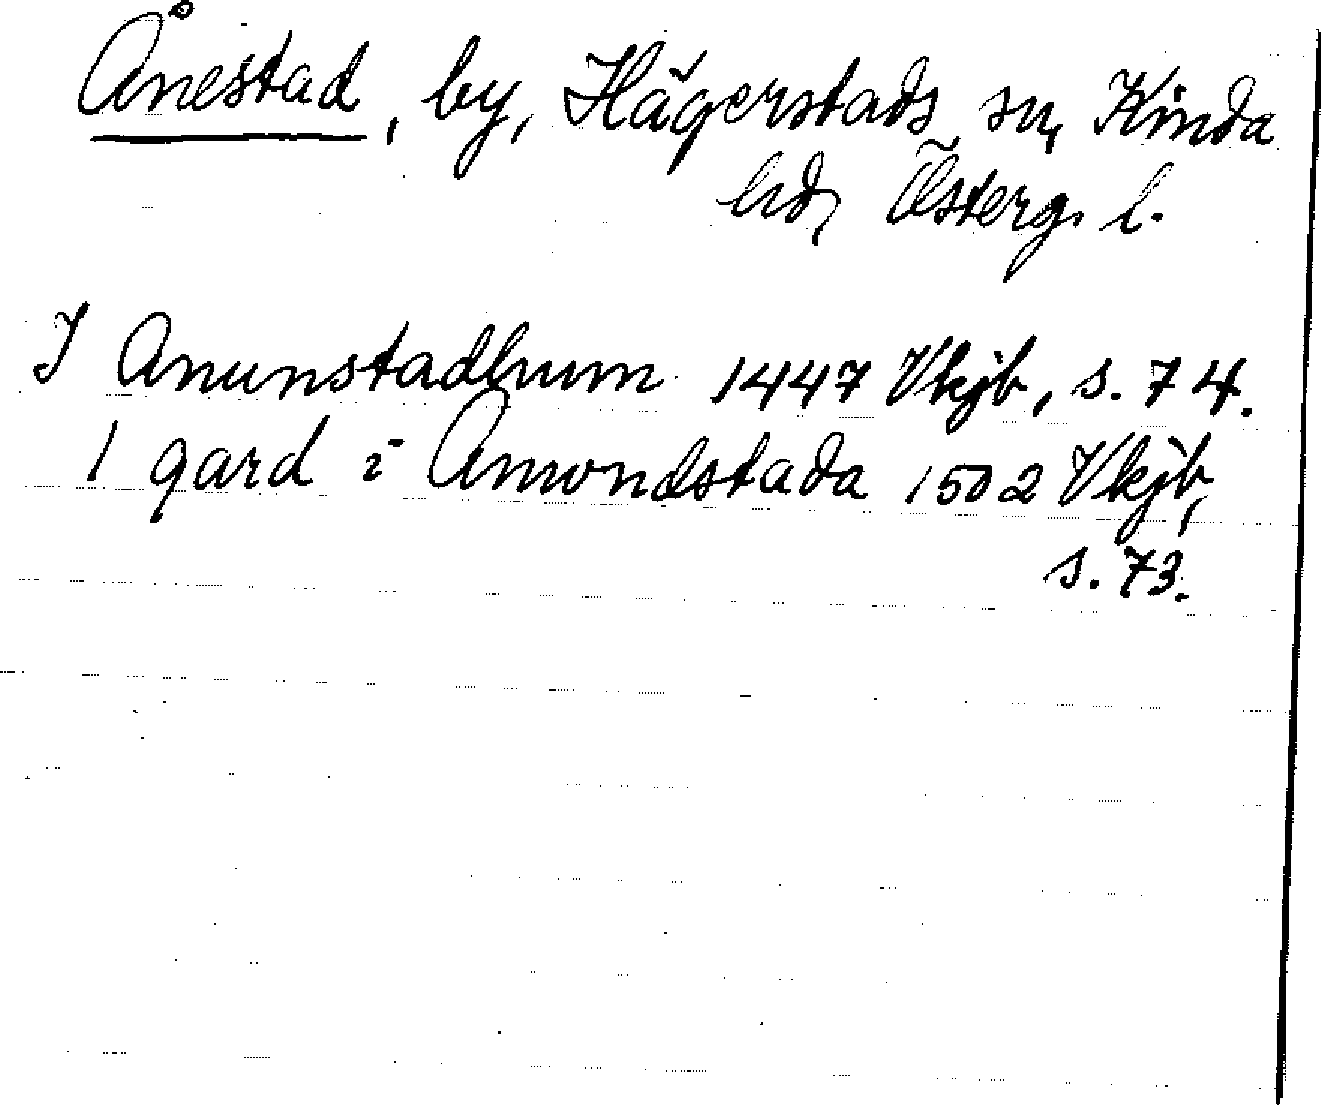 Ånestad, by, Hägerstads sn, Kinda
hd, Österg. l.
I Anunstadhum 1447 Vkjb, s. 74.
1 gard i Amondstada 1502 Vkjb,
s. 73.